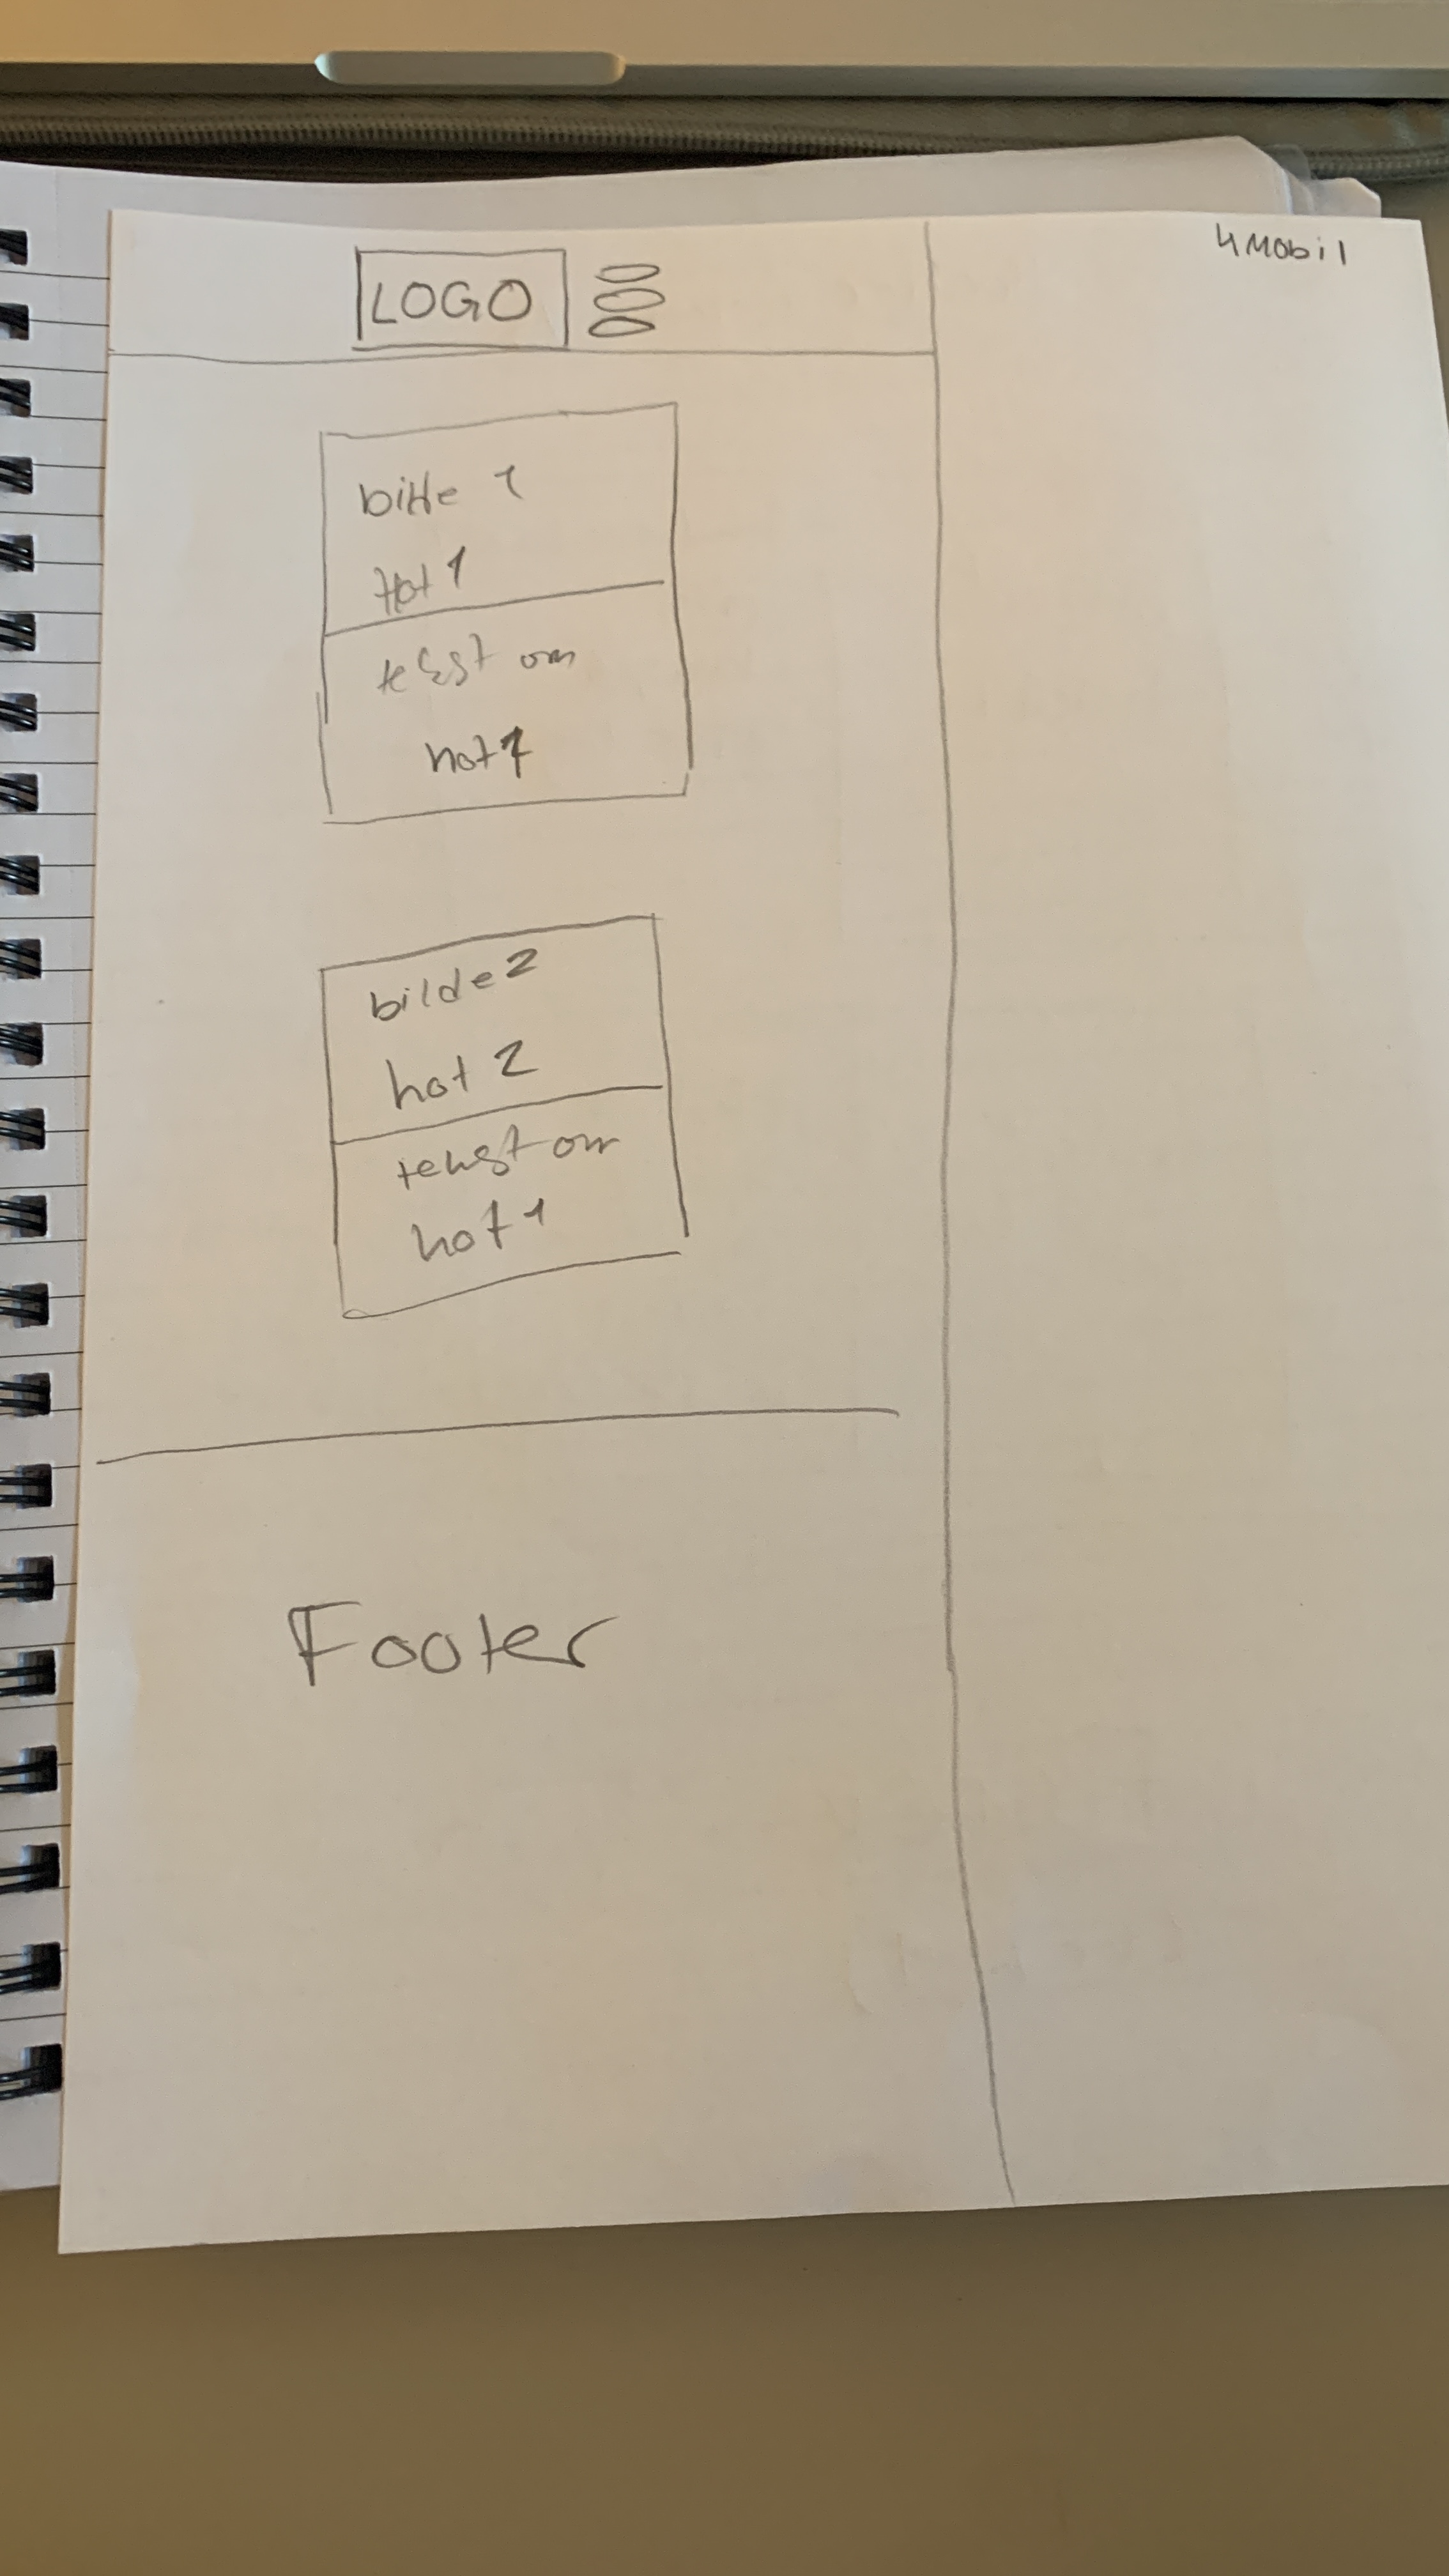 4 Mobil
LOGO
bilde 1
Hot 1
tekst om
hot 1
bilde 2
hot 2
tekst om
hot 1
Footer